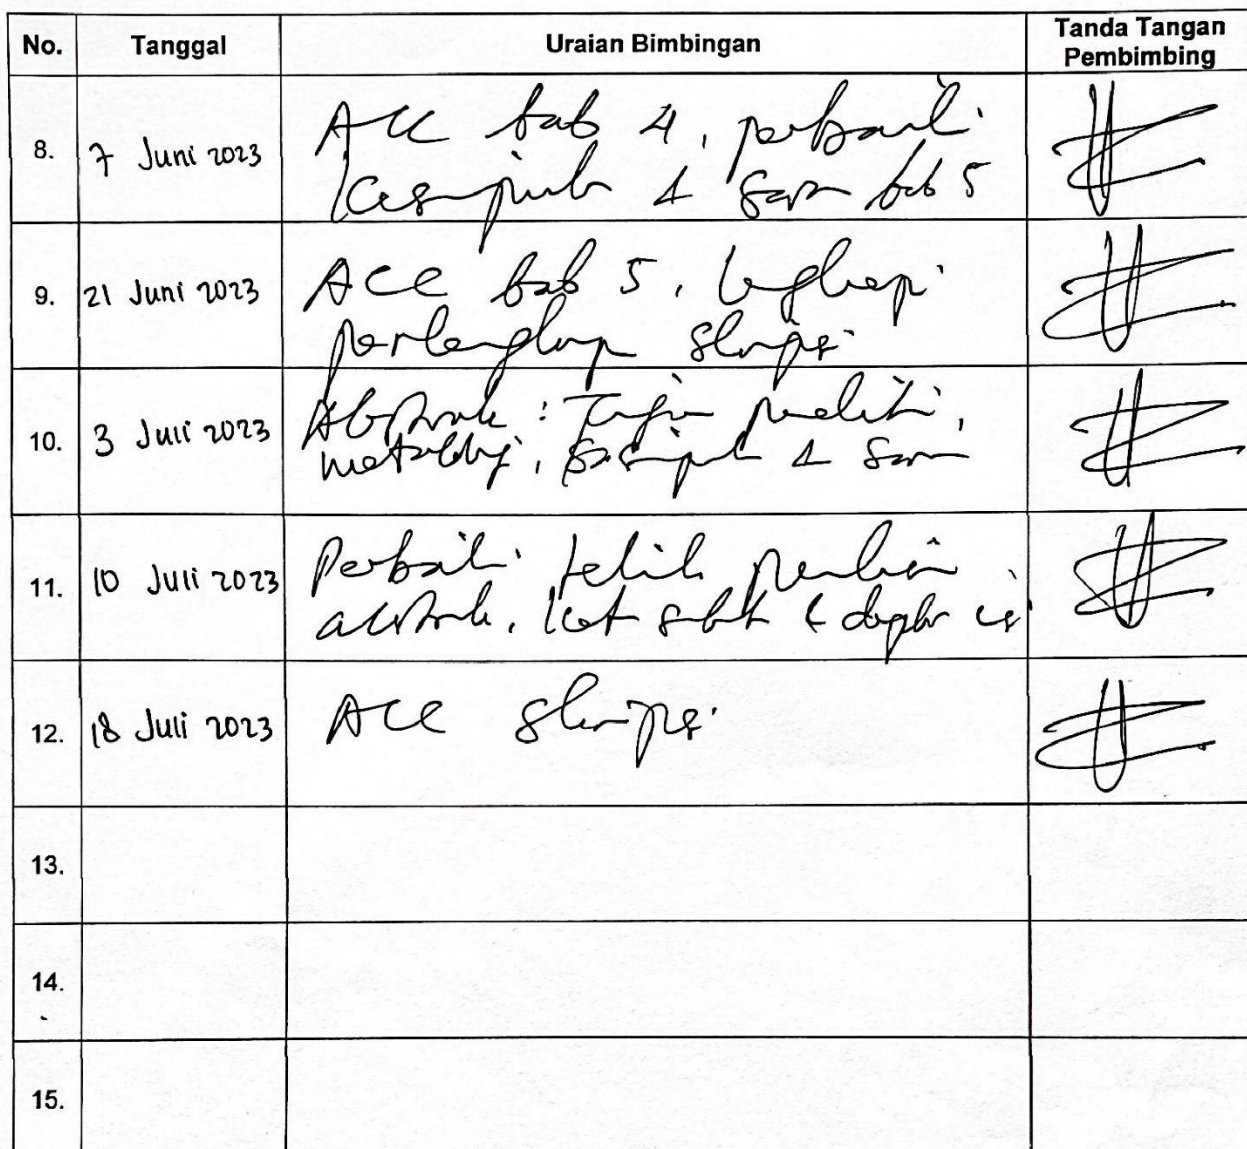 No. Tanggal Uraian Bimbingan Tanda Tangan
Pembimbing
8. 7 Juni 2023 ACC bab 4, perbaiki
kesimpulan & saran bab 5
9. 21 Juni 2023 ACC bab 5, lengkapi
perlengkapan skripsi
10. 3 Juli 2023 Abstrak : Tujuan penelitian,
metodologi, kesimpulan & saran
11. 10 Juli 2023 Perbaiki teknik penulisan
abstrak, & daftar isi
12. 18 Juli 2023 ACC skripsi
13.
14.
15.